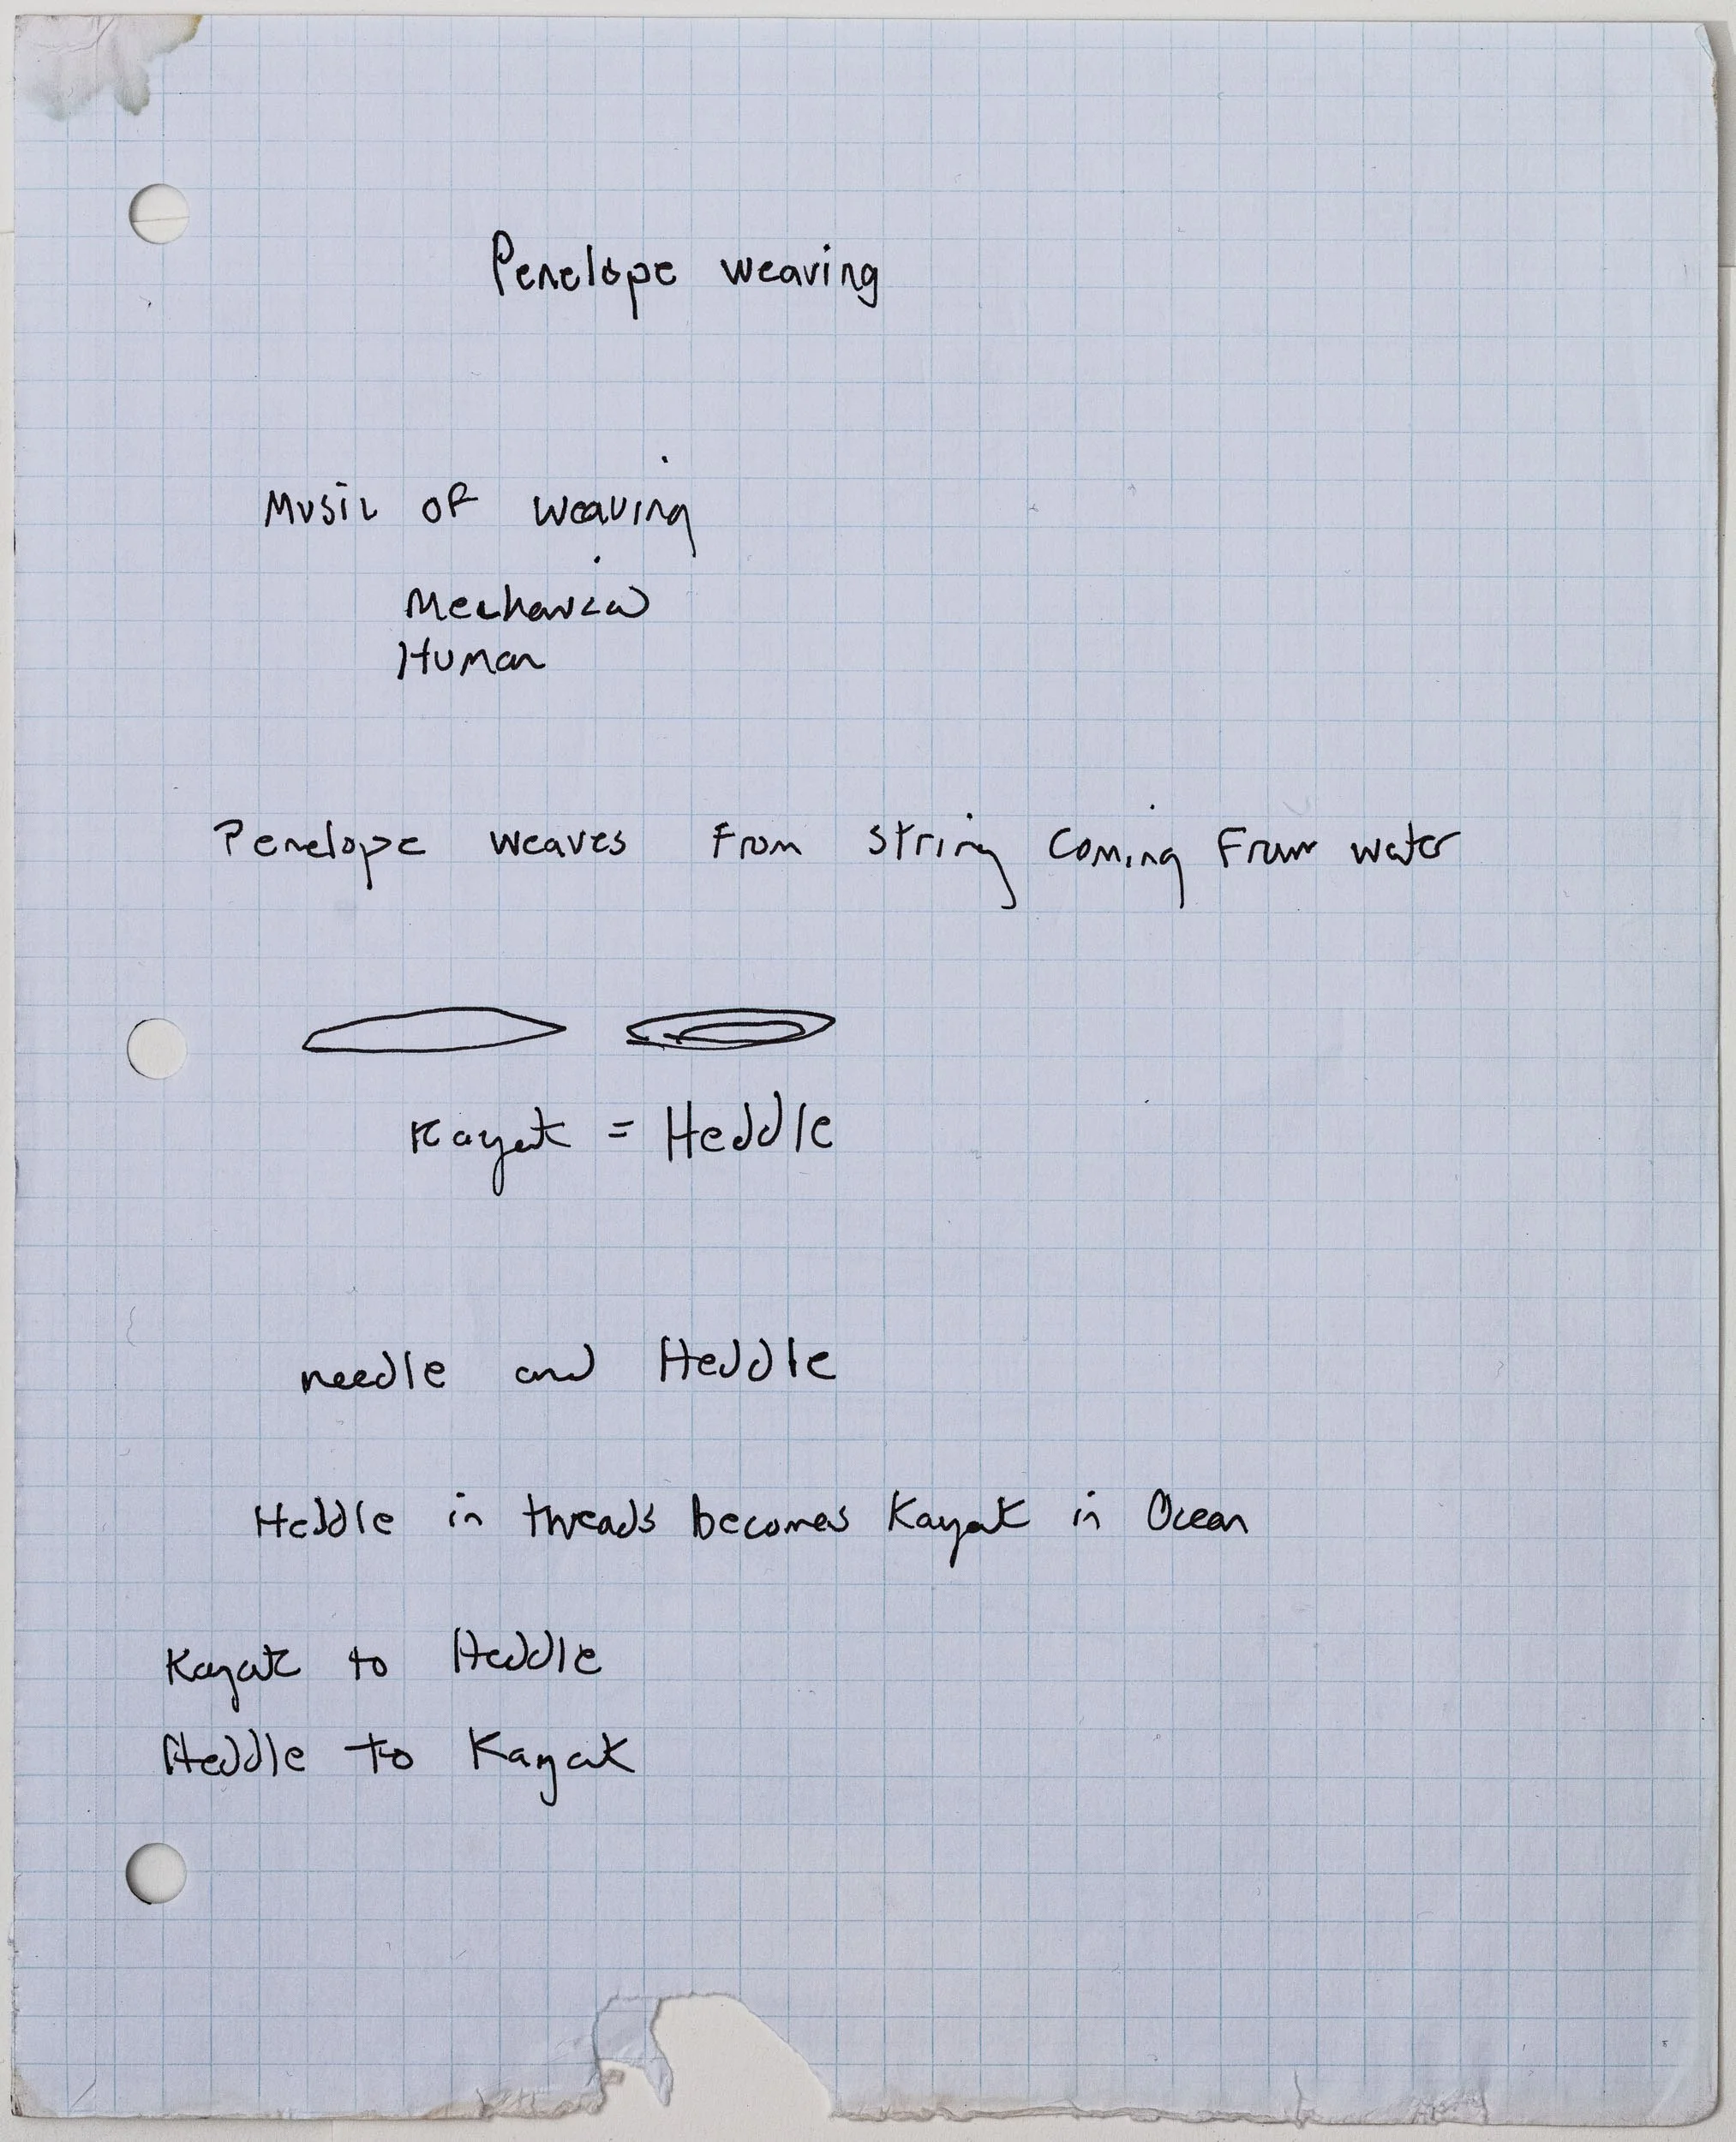 Penelope weaving
Music of weaving
Mechanical
Human
Penelope weaves From string coming From water
Kayak = Heddle
needle and Heddle
Heddle in threads becomes Kayak in Ocean
Kayak to Heddle
Heddle to Kayak